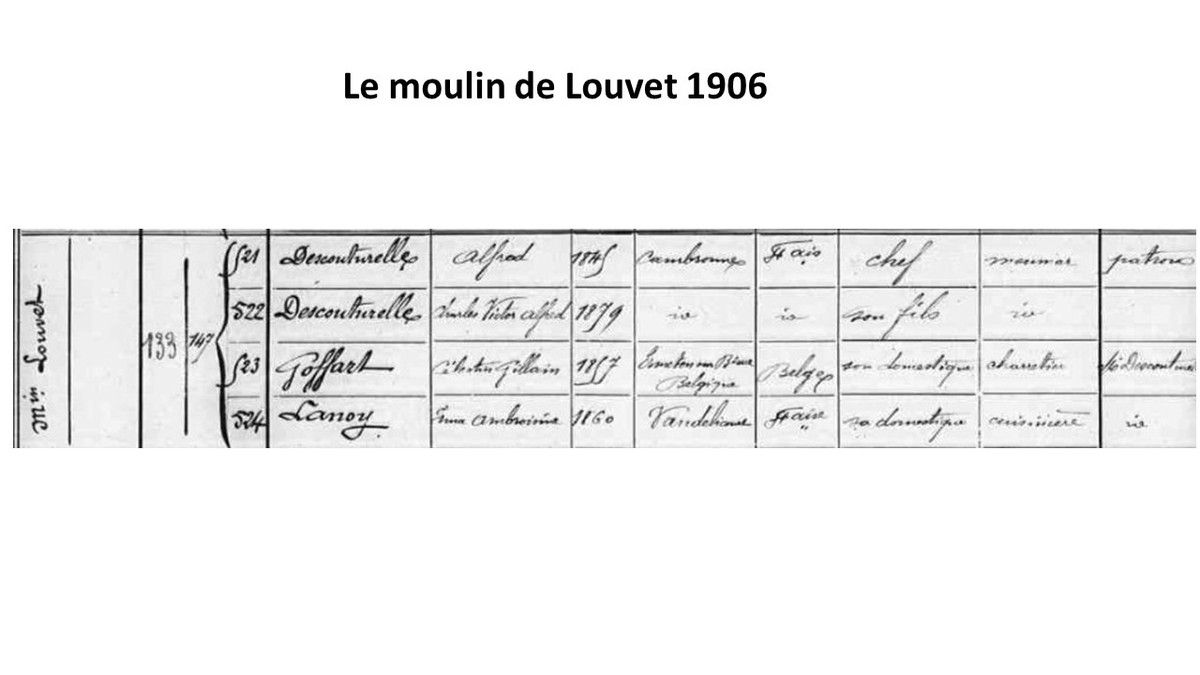 Le moulin de Louvet 1906
Min Louvet
133 147
521 Descouturelles Alfred 1845 Cambronnes Fçais chef meunier patron
522 Descouturelle Charles Victor Alfred 1879 id id son fils id
523 Goffart Gillain 1857 Belge son domestique charretier
Belgique
524 Lanoy Ambroisine 1860 Fçaise sa domestique cuisinière id